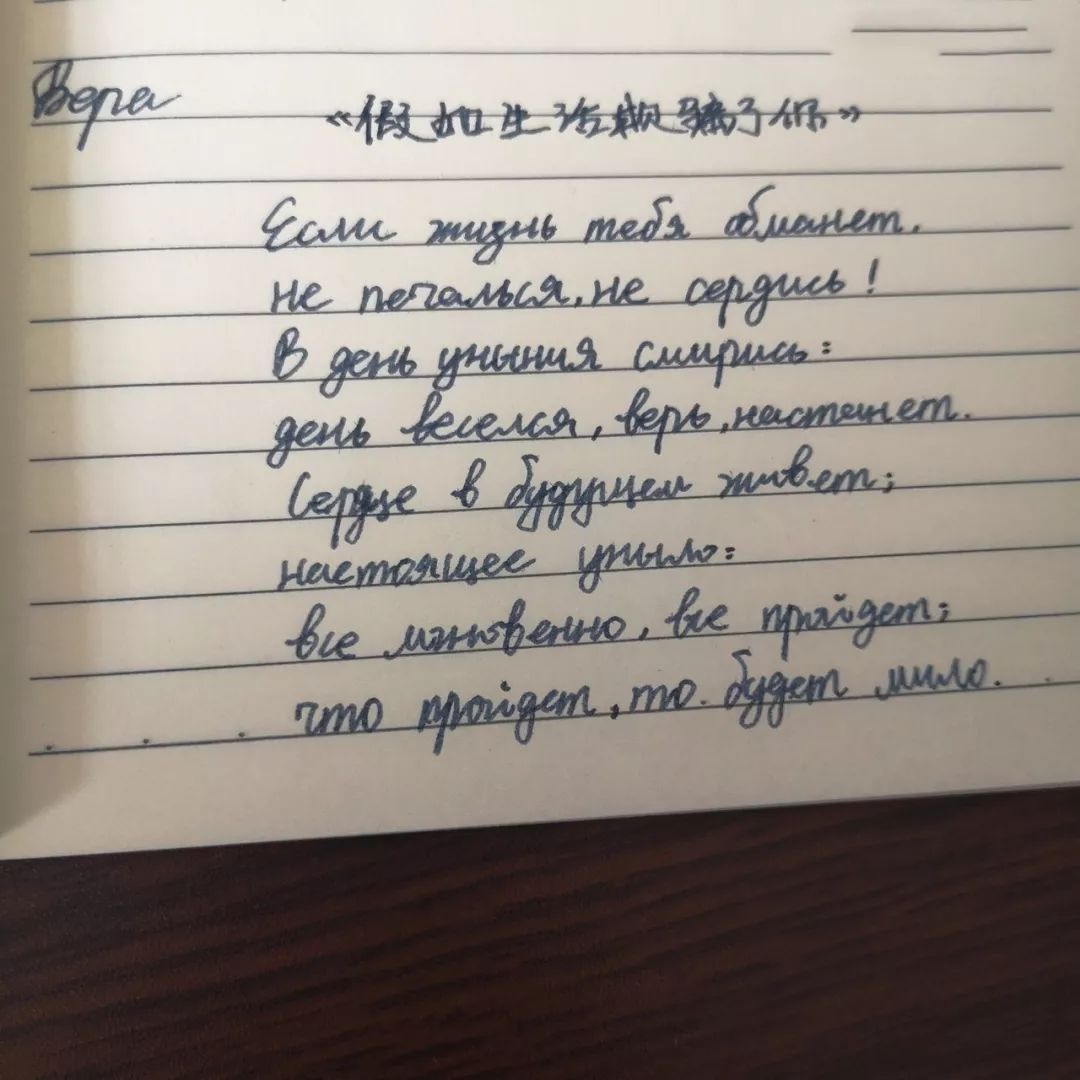 Вера
《假如生活欺骗了你》
Если жизнь тебя обманет.
не печалься, не сердись!
В день уныния смирись:
день веселся, верь, настанет.
Сердце в будущем живет;
настоящее уныло:
все мгновенно, все пройдет;
что пройдет, то. будет мило.